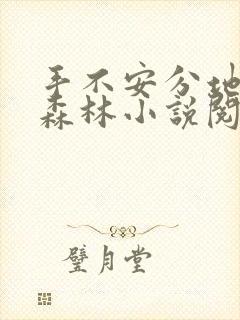 手不安分地
森林小說閱
璧月堂